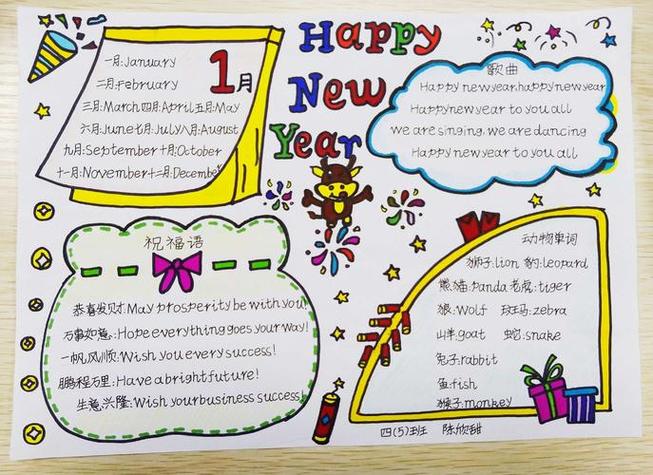 Happy
New
Year
1月
一月:January
二月:February
三月:March四月:April五月:May
六月:June七月:July八月:August
九月:September十月:October
十一月:November十二月:December
歌曲
Happy newyear.happynewyear
Happynewyear to you all
we are singing.we are dancing
Happy newyear to you all
祝福语
恭喜发财:May prosperity be with you!
万事如意:Hope everything goes your way!
一帆风顺:Wish you every success!
鹏程万里:Have a bright future!
生意兴隆:Wish your business success!
动物单词
狮子:lion 豹:leopard
熊猫:panda 老虎:tiger
狼:wolf 斑马:zebra
山羊:goat 蛇:snake
兔子:rabbit
鱼:fish
猴子:monkey
四(5)班 陈欣甜